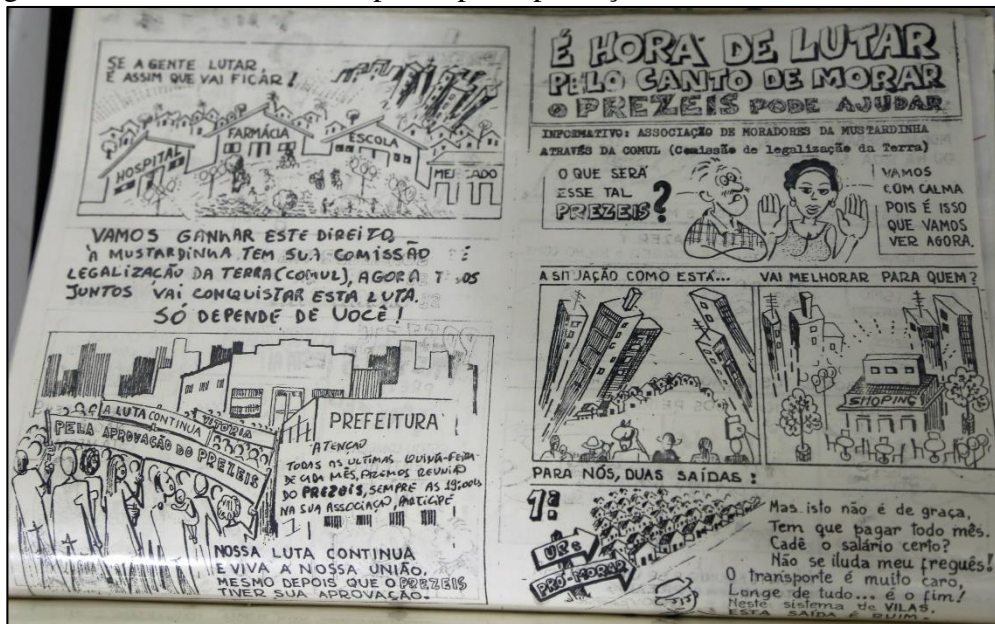 SE A GENTE LUTAR
É ASSIM QUE VAI FICAR!
HOSPITAL
FARMÁCIA
ESCOLA
VAMOS GANHAR ESTE DIREITO,
A MUSTARDINHA TEM SUA COMISSÃO
LEGALIZAÇÃO DA TERRA (COMUL), AGORA
JUNTOS VAI CONQUISTAR ESTA LUTA.
SÓ DEPENDE DE VOCÊ!
A LUTA CONTINUA
VITORIA
PELA APROVAÇÃO DO PREZEIS
PREFEITURA
ATENÇÃO
TODAS AS ULTIMAS QUINTA-FEIRA
DE CADA MÊS, FAZEMOS REUNIÃO
DO PREZEIS, SEMPRE AS
NA SUA ASSOCIAÇÃO, PARTICIPE
NOSSA LUTA CONTINUA
E VIVA A NOSSA UNIÃO,
MESMO DEPOIS QUE O PREZEIS
TIVER SUA APROVAÇÃO.
É HORA DE LUTAR
PELO CANTO DE MORAR
O PREZEIS PODE AJUDAR
INFORMATIVO: ASSOCIAÇÃO DE MORADORES DA MUSTARDINHA
ATRAVÉS DA COMUL (Comissão de legalização da Terra)
O QUE SERÁ
ESSE TAL
PREZEIS?
VAMOS
COM CALMA
POIS É ISSO
QUE VAMOS
VER AGORA.
A SITUAÇÃO COMO ESTÁ...
VAI MELHORAR PARA QUEM?
SHOPING
PARA NÓS, DUAS SAÍDAS:
1ª
UPC
PRO-MORAR
Mas isto não é de graça,
Tem que pagar todo mês.
Cadê o salário certo?
Não se iluda meu freguês!
O transporte é muito caro,
Longe de tudo... é o fim!
Neste sistema de VILAS.
ESTA SAÍDA É RUIM.